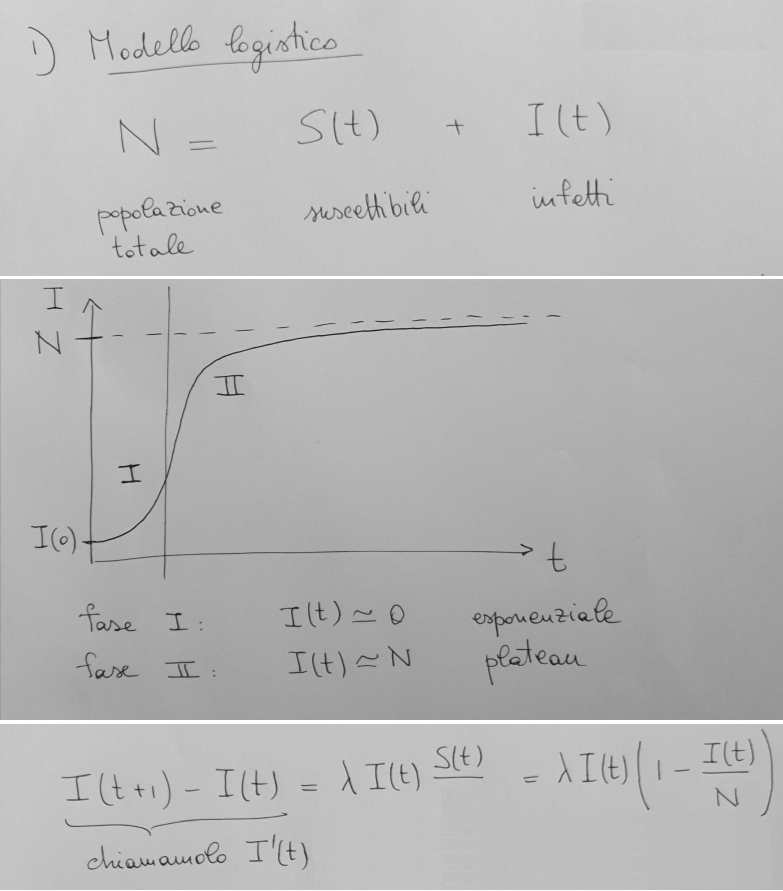 1) Modello logistico
N = S(t) + I(t)
popolazione suscettibili infetti
totale
I
N
II
I
I(0)
t
fase I: I(t) ≃ 0 esponenziale
fase II: I(t) ≃ N plateau
I(t+1) - I(t) = λ I(t) S(t)/ = λ I(t) (1 - I(t)/N)
chiamamolo I'(t)